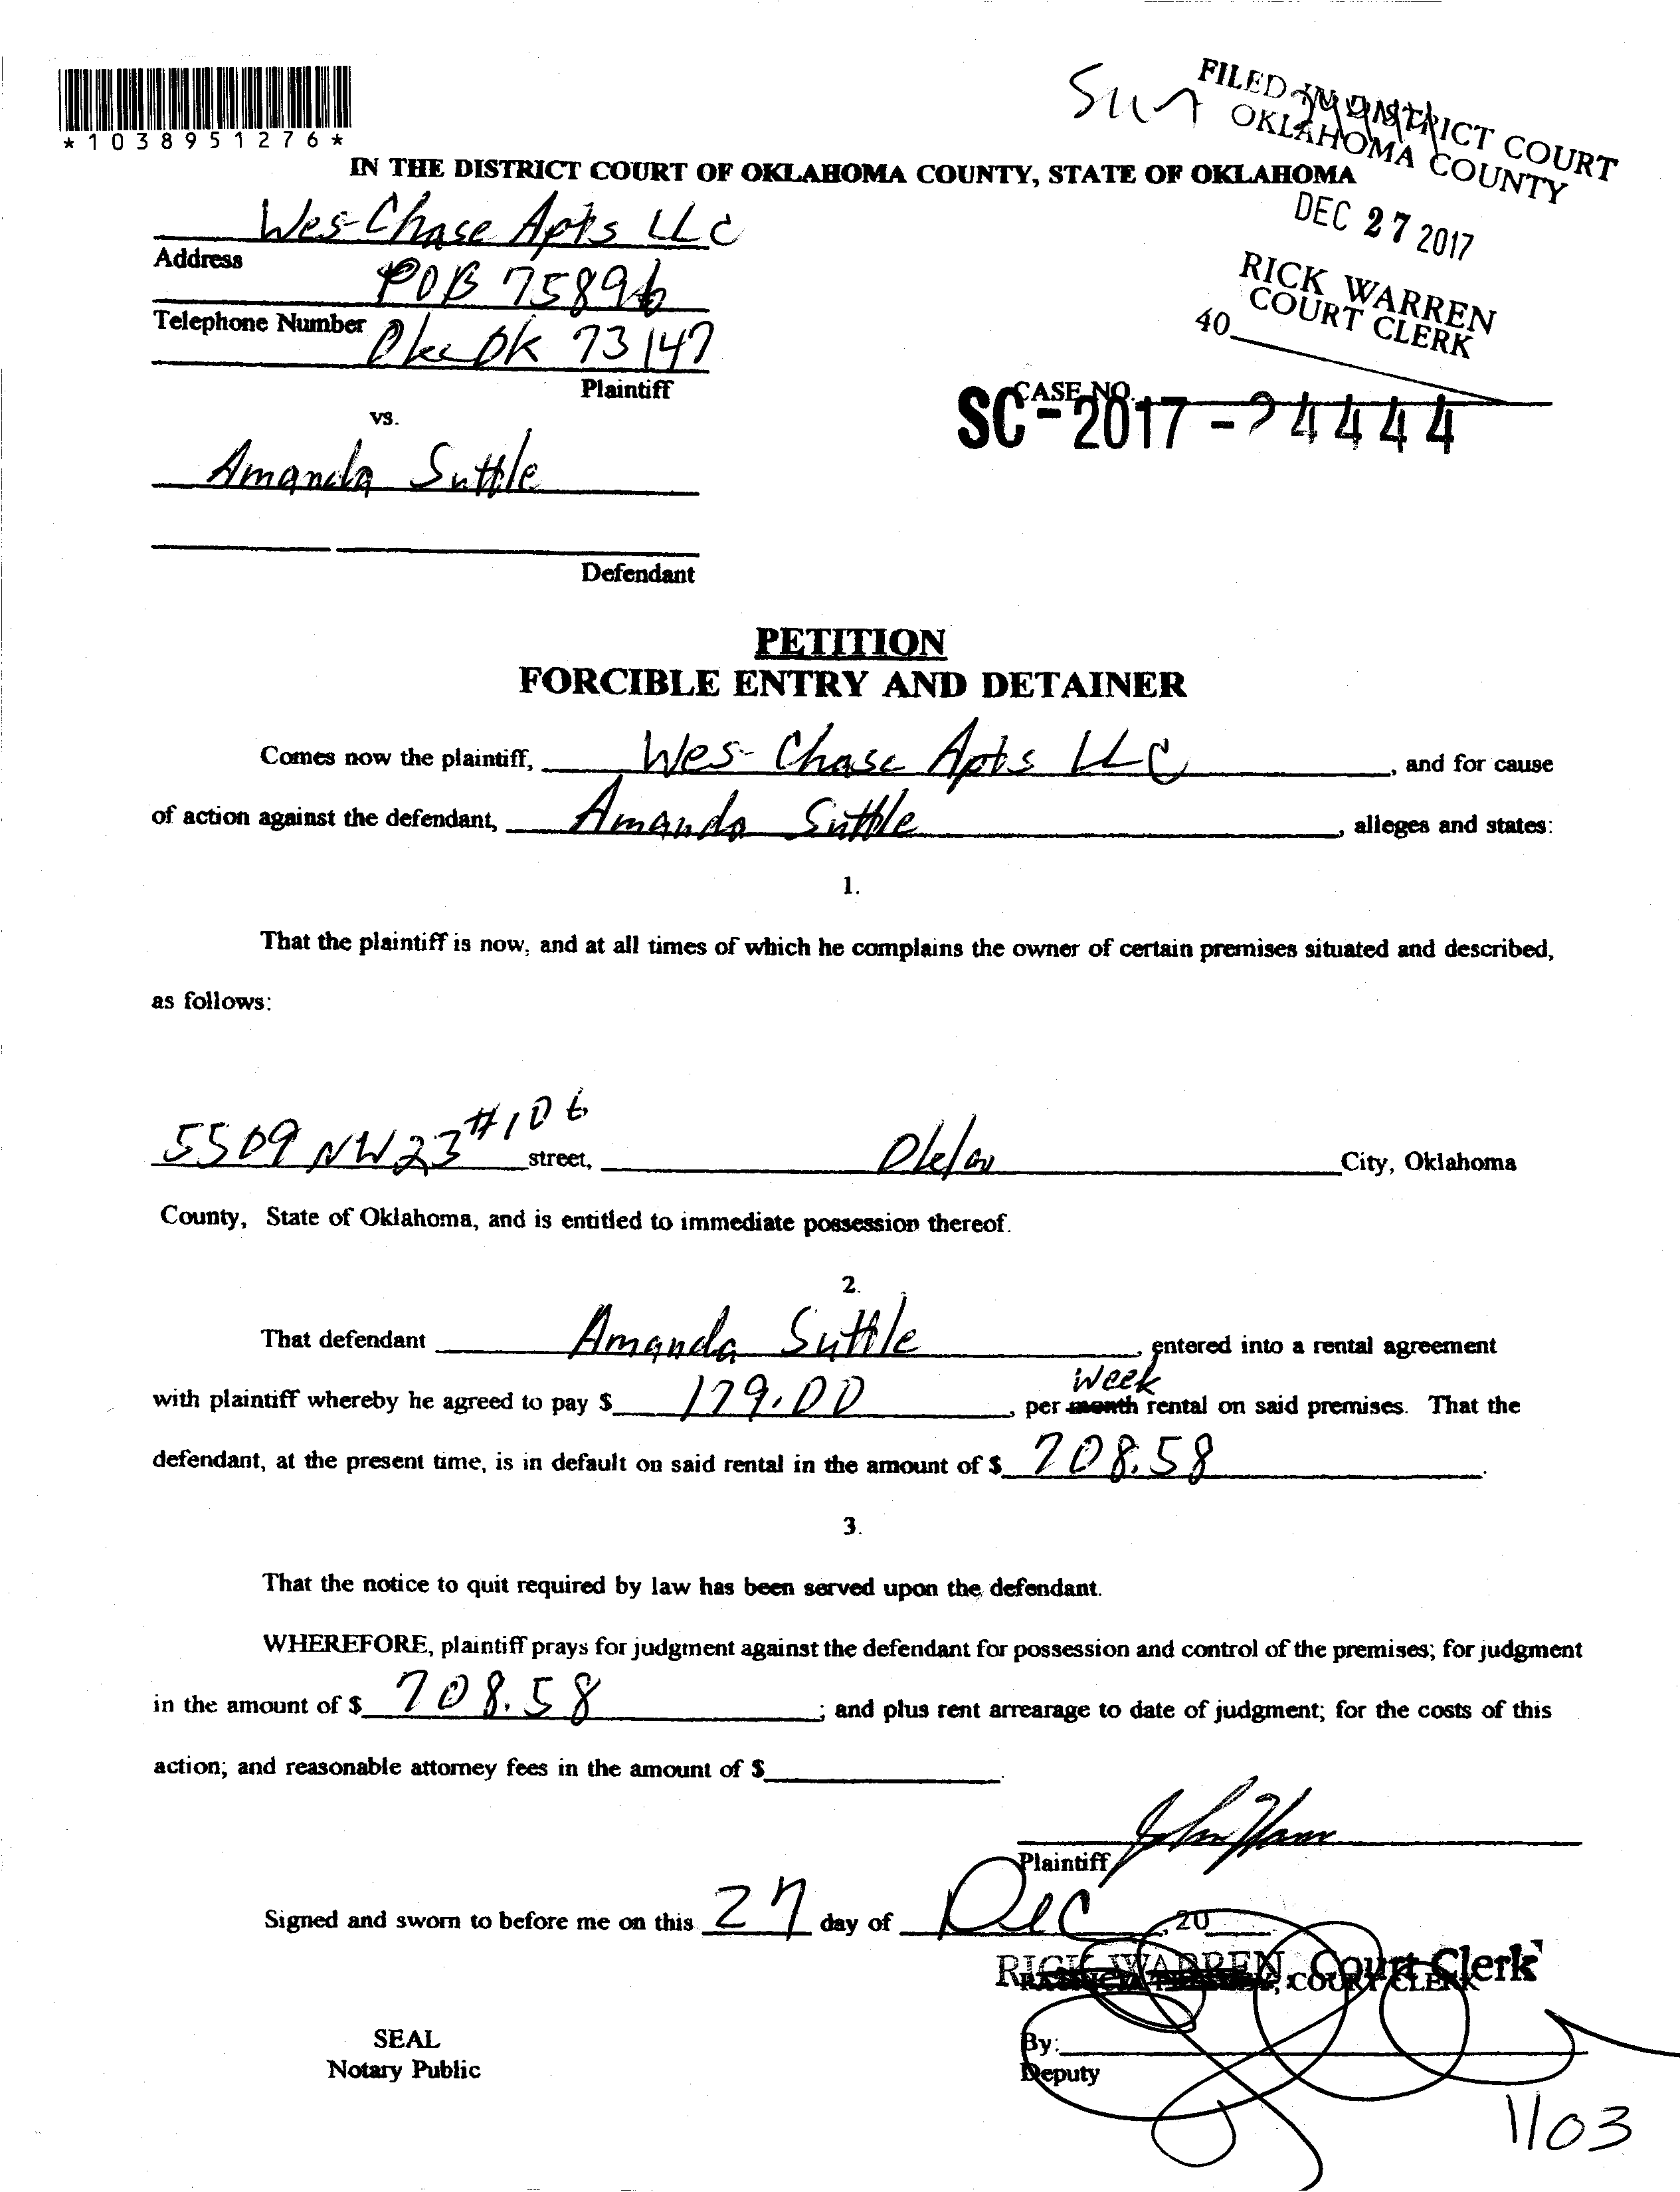 *1038951276*
FILED IN DISTRICT COURT
OKLAHOMA COUNTY
IN THE DISTRICT COURT OF OKLAHOMA COUNTY, STATE OF OKLAHOMA
DEC 27 2017
Wes-Chase Apts LLC
Address
POB 75896
RICK WARREN
COURT CLERK
40
Telephone Number
Okc OK 73147
Plaintiff
CASE NO.
SC-2017-24444
vs.
Amanda Suttle
Defendant
PETITION
FORCIBLE ENTRY AND DETAINER
Comes now the plaintiff, Wes-Chase Apts LLC, and for cause
of action against the defendant, Amanda Suttle, alleges and states:
1.
That the plaintiff is now, and at all times of which he complains the owner of certain premises situated and described,
as follows:
5509 NW 23 #106 street, City, Oklahoma
County, State of Oklahoma, and is entitled to immediate possession thereof.
2.
That defendant Amanda Suttle, entered into a rental agreement
week
with plaintiff whereby he agreed to pay $ 179.00, per month rental on said premises. That the
defendant, at the present time, is in default on said rental in the amount of $ 708.58.
3.
That the notice to quit required by law has been served upon the defendant.
WHEREFORE, plaintiff prays for judgment against the defendant for possession and control of the premises; for judgment
in the amount of $ 708.58; and plus rent arrearage to date of judgment; for the costs of this
action; and reasonable attorney fees in the amount of $
Plaintiff
Signed and sworn to before me on this 27 day of Dec, 20
RICK WARREN, Court Clerk
COURT CLERK
SEAL
Notary Public
By:
Deputy
1/03